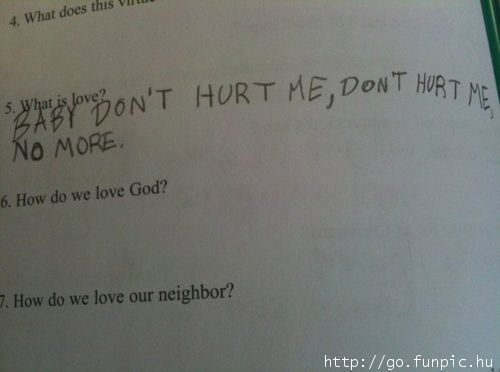 4. What does this
5. What is love?
BABY DON'T HURT ME, DON'T HURT ME,
NO MORE.
6. How do we love God?
7. How do we love our neighbor?
http://go.funpic.hu